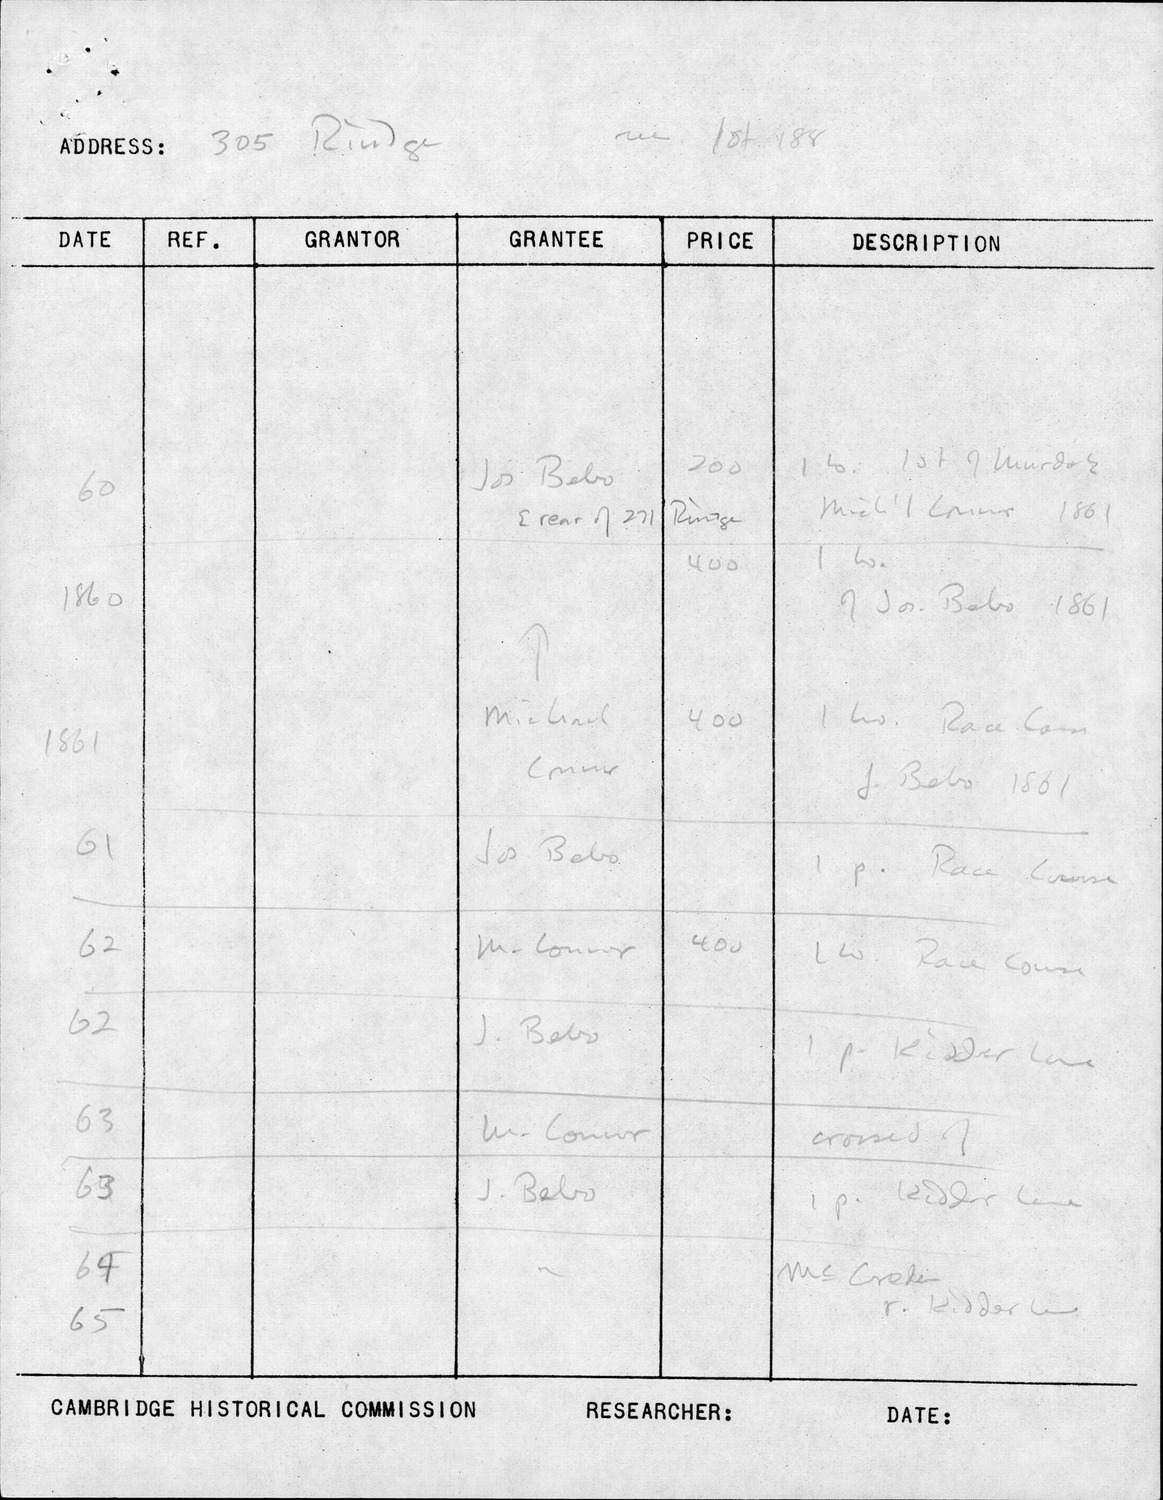 ADDRESS: 305 Rindge lot 188
DATE REF. GRANTOR GRANTEE PRICE DESCRIPTION
60 Jos Bebo 200 1 ho. lot of Murdock
& rear of 271 Rindge Mich'l Connor 1861
400 1 ho.
1860 of Jos. Bebo 1861
↑
Michael 400 1 ho. Race Course
1861
Connor J. Bebo 1861
61 Jos Bebo 1 p. Race Course
62 M. Connor 400 1 ho. Race Course
62 J. Bebo 1 p. Kidder Lane
63 M. Connor crossed off
63 J. Bebo 1 p. Kidder Lane
64 "
65 r. Kidder Ln
CAMBRIDGE HISTORICAL COMMISSION RESEARCHER: DATE: